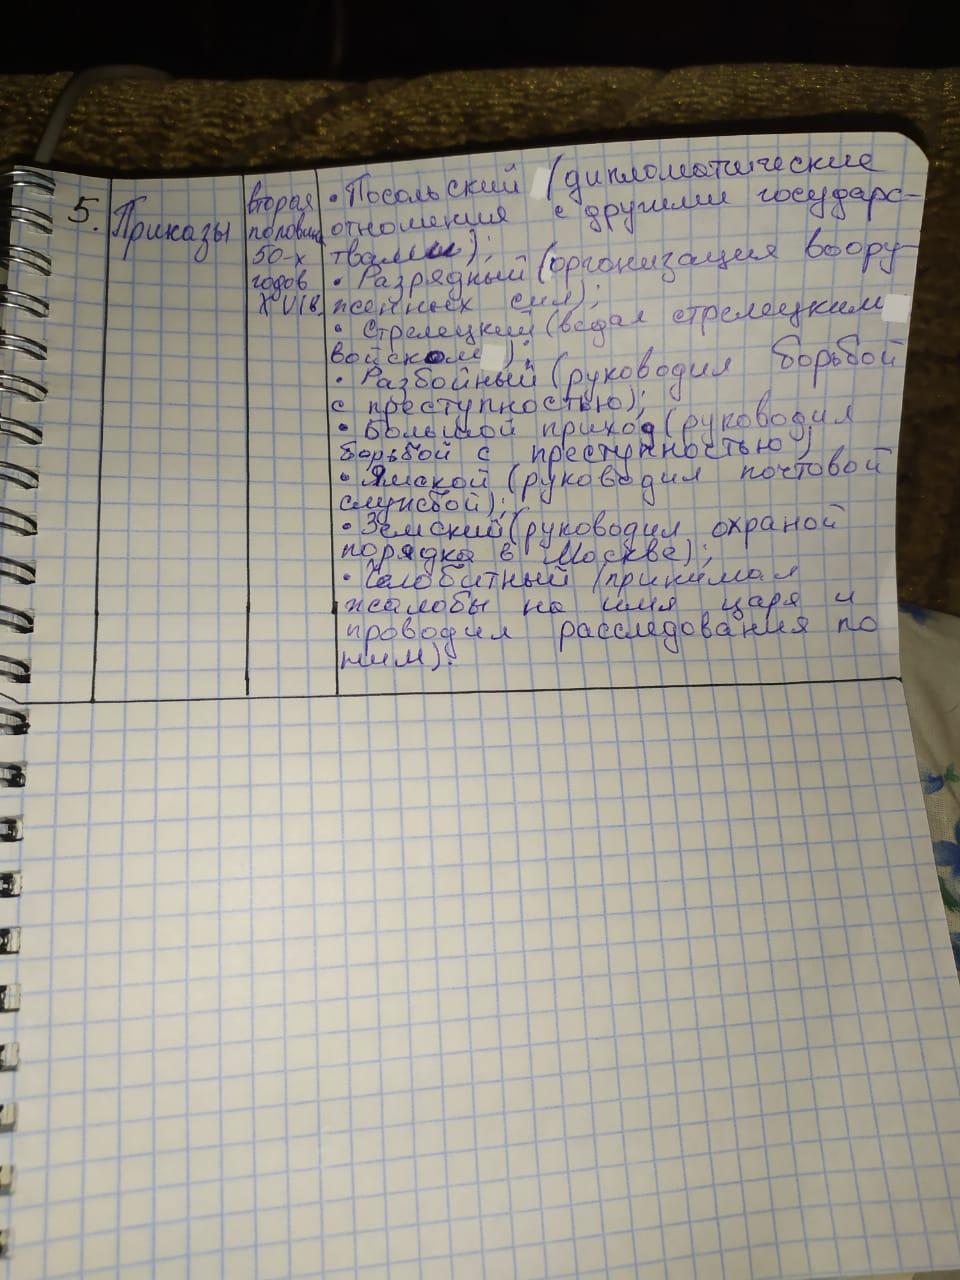 5.
Приказы
вторая
половина
50-х
годов
XVIв.
• Посольский (дипломатические
отношения с другими государс-
твами);
• Разрядный (организация воору-
женных сил);
• Стрелецкий (ведал стрелецким
войском);
• Разбойный (руководил борьбой
с преступностью);
• Большой приход (руководил
борьбой с преступностью)
• Ямской (руководил почтовой
службой);
• Земский (руководил охраной
порядка в Москве);
• Челобитный (принимал
жалобы на имя царя и
проводил расследования по
ним).